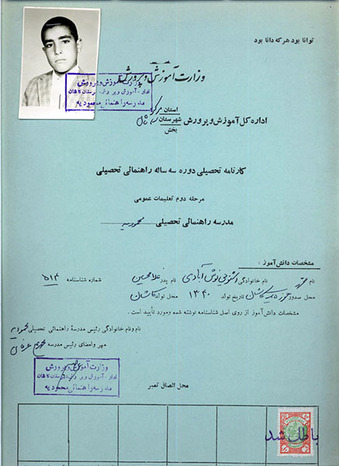 توانا بود هر که دانا بود
وزارت آموزش و پرورش
وزارت آموزش و پرورش
مدرسه راهنمائی محمودیه
استان
اداره کل آموزش و پرورش شهرستان
بخش
کارنامه تحصیلی دوره سه ساله راهنمائی تحصیلی
مرحله دوم تعلیمات عمومی
مدرسه راهنمائی تحصیلی محمودیه
مشخصات دانش‌آموز :
نام نام خانوادگی نام پدر غلامحسین شماره شناسنامه ۵۱۴
محل صدور کاشان تاریخ تولد ۱۳۴۰ محل تولد کاشان
مشخصات دانش‌آموز از روی اصل شناسنامه نوشته شده و مورد تأیید است .
نام و نام خانوادگی رئیس مدرسهٔ راهنمائی تحصیلی
مهر و امضای رئیس مدرسه
وزارت آموزش و پرورش
مدرسه راهنمائی محمودیه
محل الصاق تمبر
باطل شد